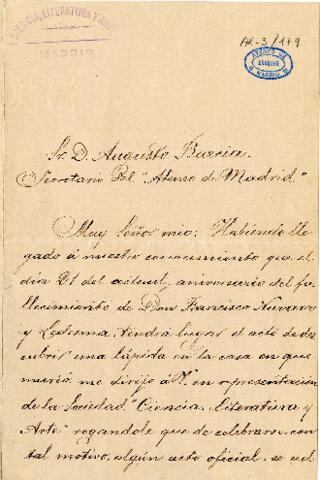 CIENCIA, LITERATURA Y ARTE
MADRID
AR-3/149
ATENEO DE
MADRID
Sr. D. Augusto Barcia.
Secretario del "Ateneo de Madrid"
Muy Señor mio: Habiendo lle
gado á nuestro conocimiento que el
dia 21 del actual, aniversario del fa
llecimiento de Don Francisco Navarro
y Ledesma, tendrá lugar el acto de des
cubrir una lápida en la casa en que
murió, me dirijo á V. en representación
de la Sociedad "Ciencia, Literatura y
Arte" rogandole que de celebrarse con
tal motivo, algún acto oficial, se ad